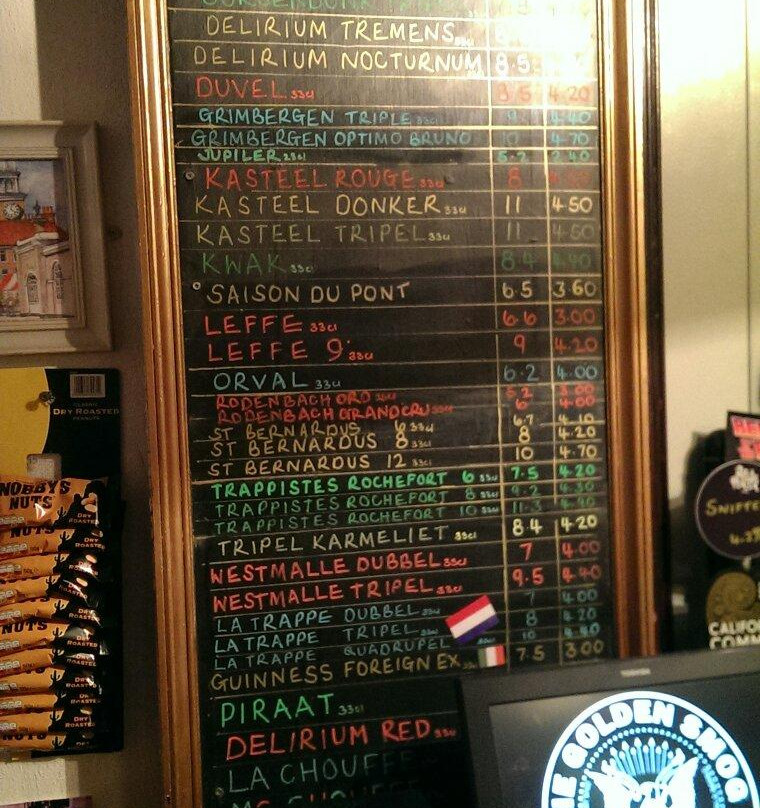 DELIRIUM TREMENS 33cl
DELIRIUM NOCTURNUM 8.5
DUVEL 33cl 8.5 4.20
GRIMBERGEN TRIPLE 33cl 9 4.40
GRIMBERGEN OPTIMO BRUNO 10 4.70
JUPILER 25cl 5.2 2.40
KASTEEL ROUGE 33cl 8
KASTEEL DONKER 33cl 11 4.50
KASTEEL TRIPEL 33cl 11 4.50
KWAK 33cl 8.4 4.40
SAISON DU PONT 6.5 3.60
LEFFE 33cl 6.6 3.00
LEFFE 9° 33cl 9 4.20
ORVAL 33cl 6.2 4.00
RODENBACH ORO 5.2 3.00
RODENBACH GRANDCRU 6 4.00
ST BERNARDUS 6 33cl 6.7 4.10
ST BERNARDUS 8 33cl 8 4.20
ST BERNARDUS 12 33cl 10 4.70
TRAPPISTES ROCHEFORT 6 33cl 7.5 4.20
TRAPPISTES ROCHEFORT 8 33cl 9.2 4.30
TRAPPISTES ROCHEFORT 10 33cl 11.3
TRIPEL KARMELIET 33cl 8.4 4.20
WESTMALLE DUBBEL 33cl 7 4.00
WESTMALLE TRIPEL 33cl 9.5 4.40
LA TRAPPE DUBBEL 33cl 7 4.00
LA TRAPPE TRIPEL 33cl 8 4.20
LA TRAPPE QUADRUPEL 10 4.40
GUINNESS FOREIGN EX 7.5 3.00
PIRAAT 33cl
DELIRIUM RED 33cl
LA CHOUFFE
CLASSIC
DRY ROASTED
PEANUTS
NOBBY'S
NUTS
DRY ROASTED
NUTS
SNIFFE
CALIFO
COMM
TOSHIBA
E GOLDEN SMOG